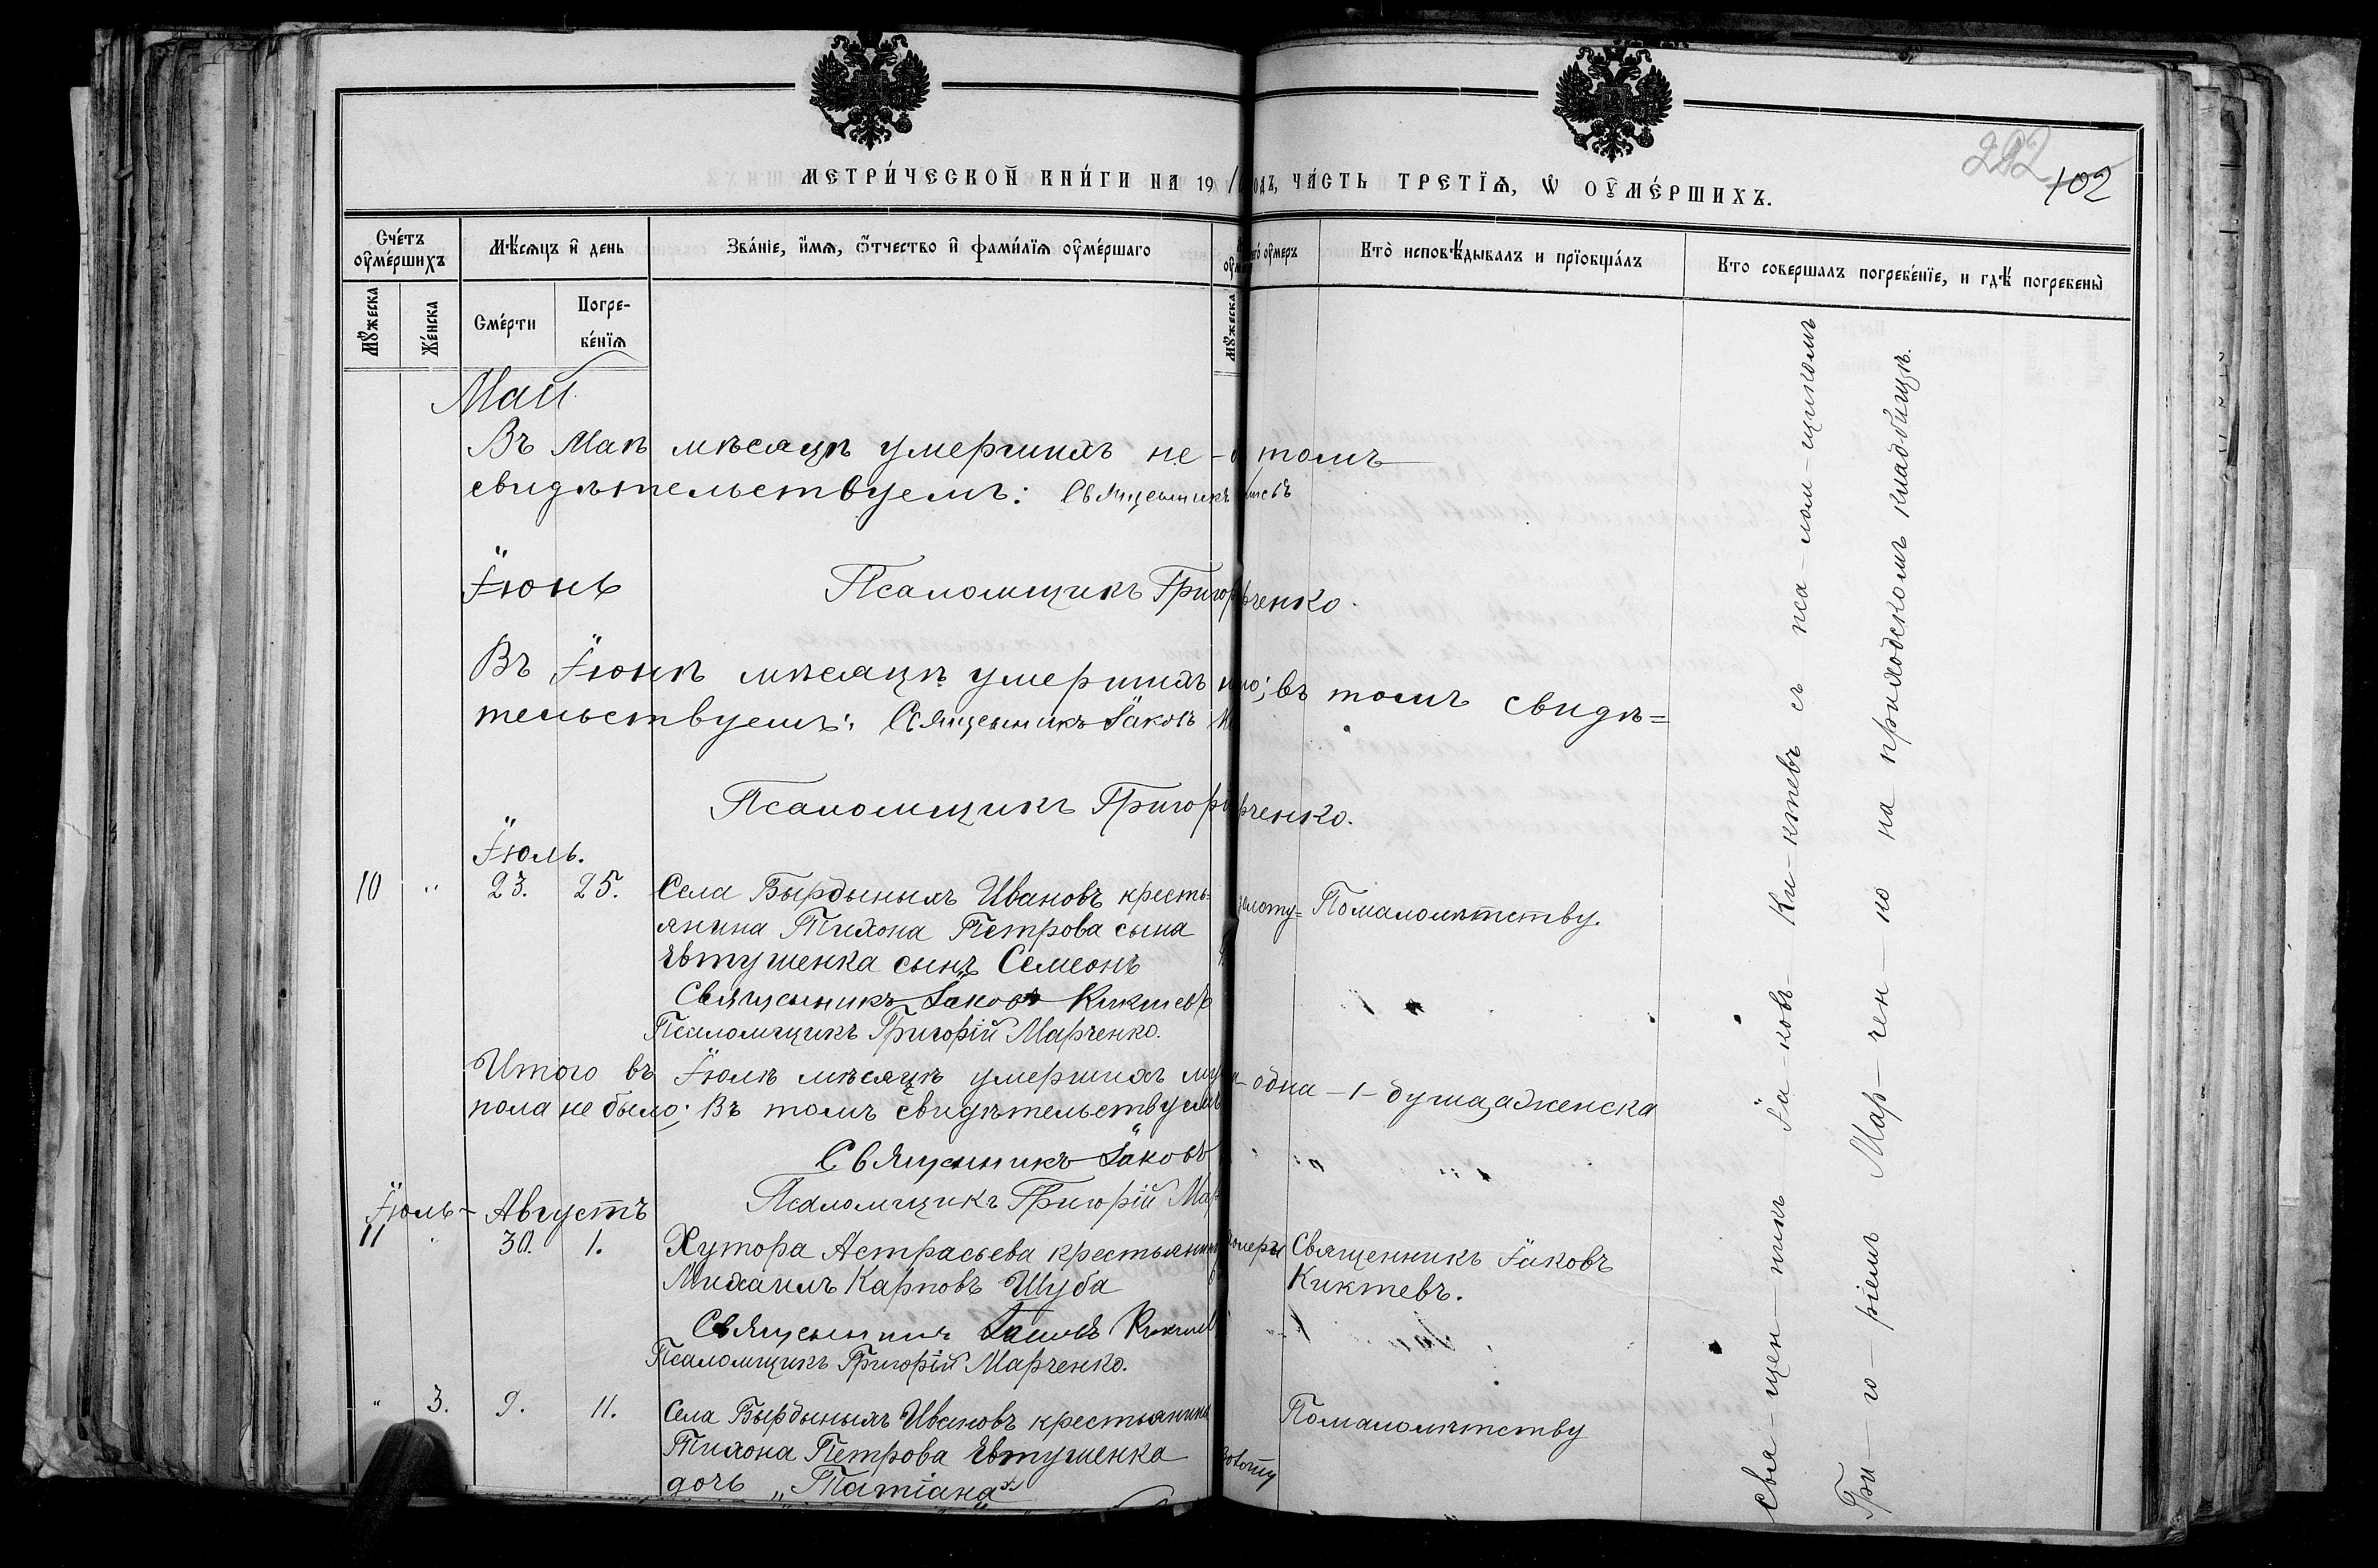 МЕТРИ́ЧЕСКОЙ КНИ́ГИ НА 19 ЧА́СТЬ ТРЕТЇѦ, Ѡ ОУ҆МЕ́РШИХЪ.
202
102
Сче́тъ оу҆ме́ршихъ
Мѣ́сѧцъ и҆ день
Зва́нїе, и҆́мѧ, ѻ҆́тчество и҆ фами́лїѧ оу҆ме́ршагѡ
оу҆меръ
Кто̀ исповѣ́дывалъ и прїобща́лъ
Кто соверша́лъ погребе́нїе, и гдѣ̀ погребены̀
Мꙋ́жеска
Же́нска
Сме́рти
Погре-
бе́нїѧ
Мꙋ́жеска
Май
Въ Маѣ мѣсяцѣ умершихъ не томъ
свидѣтельствуемъ: Священникъ
Іюнь
Псаломщикъ Григор рченко.
Въ Іюнѣ мѣсяцѣ умершихъ въ томъ свидѣ=
тельствуемъ: Священникъ Іаковъ
Псаломщикъ Григор рченко.
Іюль.
10 " 23. 25. Села Бырдыныхъ Ивановъ кресть= Помалолѣтству.
янина Тихона Петрова сына
Евтушенка сынъ Семеонъ
Священникъ Іаковъ Киктевъ
Псаломщикъ Григорій Марченко.
Итого въ Іюлѣ мѣсяцѣ умершихъ одна – 1 – душа, а женска
пола не было; Въ томъ свидѣтельствуемъ
Священникъ Іаковъ
Псаломщикъ Григорій Мар
Іюль – Августъ
11 " 30. 1. Хутора Астрасьева крестьянинъ Священникъ Іаковъ
Михаилъ Карповъ Шуба Киктевъ.
Священникъ Іаковъ Киктев
Псаломщикъ Григорій Марченко.
" 3. 9. 11. Села Бырдыныхъ Ивановъ крестьянина Помалолѣтству
Тихона Петрова Евтушенка
дочь „Татіана"
Свя – щен – никъ Іа – ковъ Ки – ктевъ съ пса – лом – щикомъ
Гри – го – ріемъ Мар – чен – ко на приходскомъ кладбищѣ.